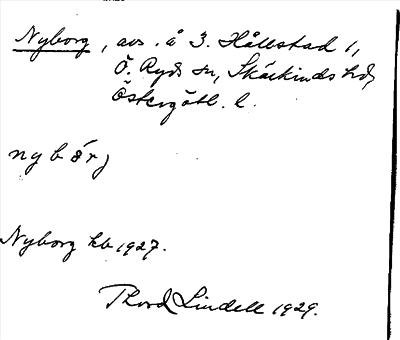 Nyborg, avs. å 3. Hållstad 1,
Ö. Ryds sn, Skärkinds hd,
Östergötl. l.
nybårj
Nyborg kb 1927.
Thord Lindell 1929.